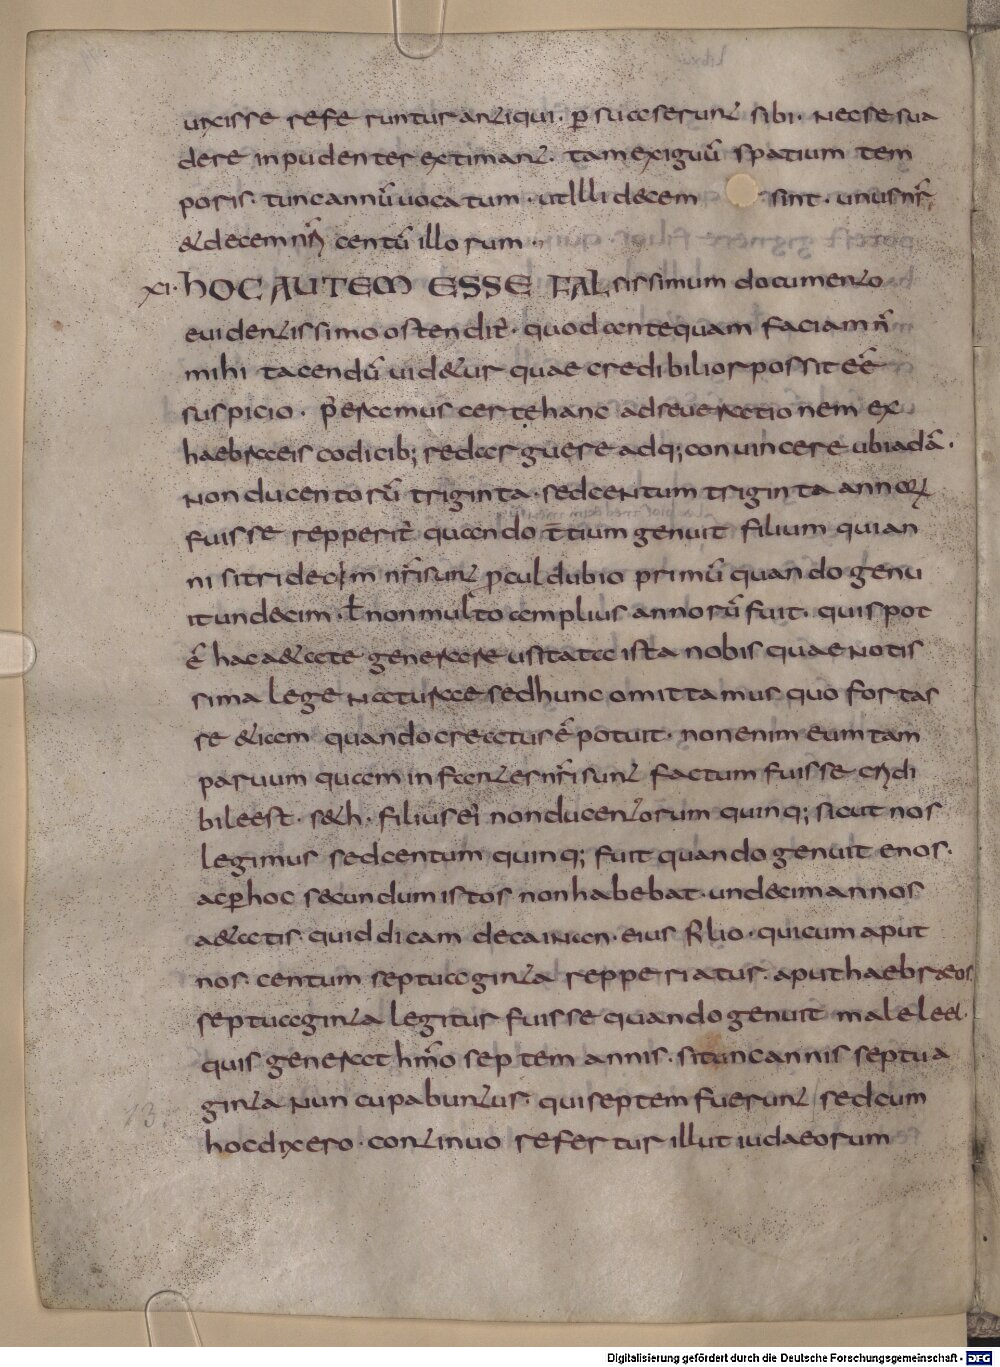 uixisse referuntur antiqui· ꝑsuaserunt sibi· nec se sua
dere inpudenter extimant· tam exiguū spatium tem
poris· tunc annū uocatum· ut illi decem sint· unus nr̄·
& decem nr̄i centū illorum·
XI· HOC AUTEM ESSE FALsissimum documento
euidentissimo ostendit̄· quod antequam faciam n̄
mihi tacendū uid&ur quae credibilior possit eē
suspicio· p̄eramus certe hanc adseuerationem ex
haebraeis codicib; redarguere adq; conuincere ubi adā·
non ducentorū triginta· sed centum triginta annoꝝ
fuisse repperit̄ quando t̄tium genuit filium qui an
ni si tridecim nr̄i sunt ꝓculdubio primū quando genu
it undecim· ł non multo amplius annorū fuit· quis pot
ē hac a&ate generare usitata ista nobis quae notis
sima lege naturae sed hunc omittamus quo fortas
se &iam quando creatus ē potuit· non enim eum tam
paruum quam infantes nr̄i sunt factum fuisse credi
bile est· s&h· filius ei non ducentorum quinq; sicut nos
legimus sed centum quinq; fuit quando genuit enos·
ac ꝑhoc secundum istos non habebat· undecim annos
a&atis· quid dicam de cainan· eius filio· qui cum aput
nos· centum septuaginta repperiatur· aput haebraeos
septuaginta legitur fuisse quando genuit maleleel·
quis generat hm̄o septem annis· si tunc annis septua
ginta nuncupabuntur· qui septem fuerunt sed cum
hoc dixero· continuo refertur illut iudaeorum
Digitalisierung gefördert durch die Deutsche Forschungsgemeinschaft - DFG